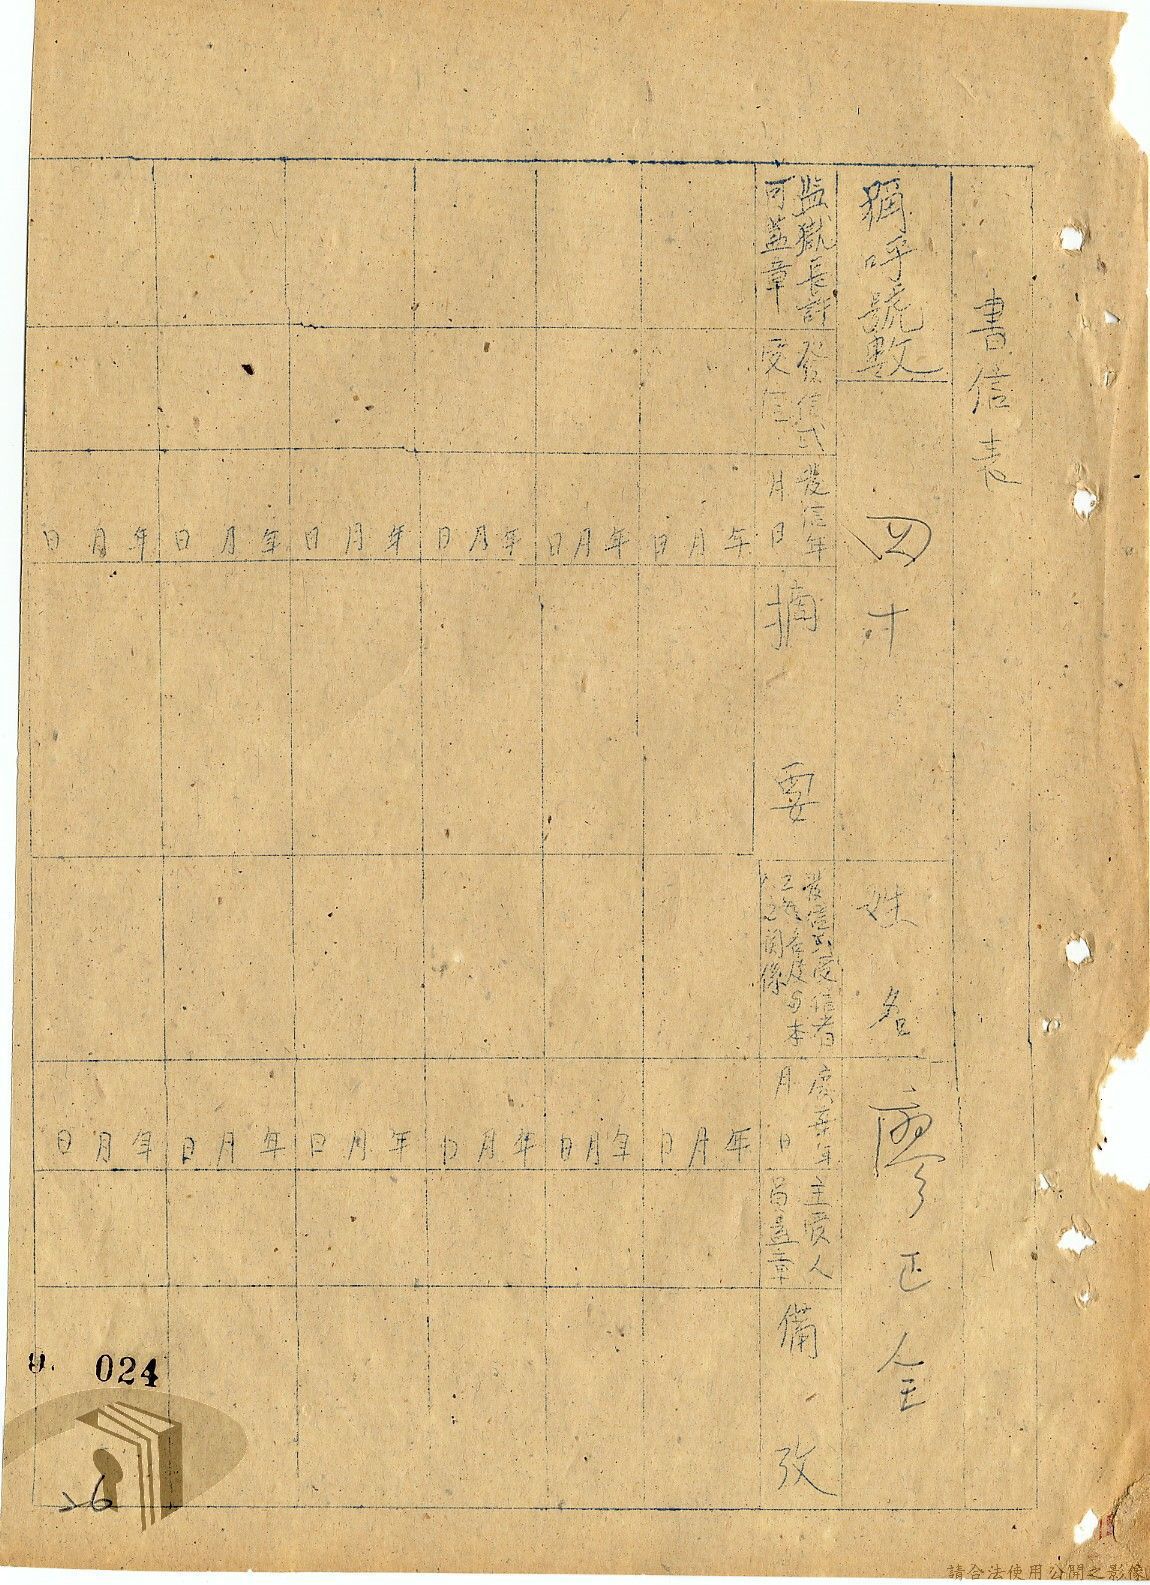 書信表
稱呼號數
四
姓名
廖正全
監獄長許
可蓋章
發信或
受信
發信年
月日
摘要
發信或受信者
之姓名及與本
人之關係
廢棄年
月日
主受人
員蓋章
備攷
年月日
年月日
年月日
年月日
年月日
年月日
年月日
年月日
年月日
年月日
年月日
年月日
024
26
請合法使用公開之影像